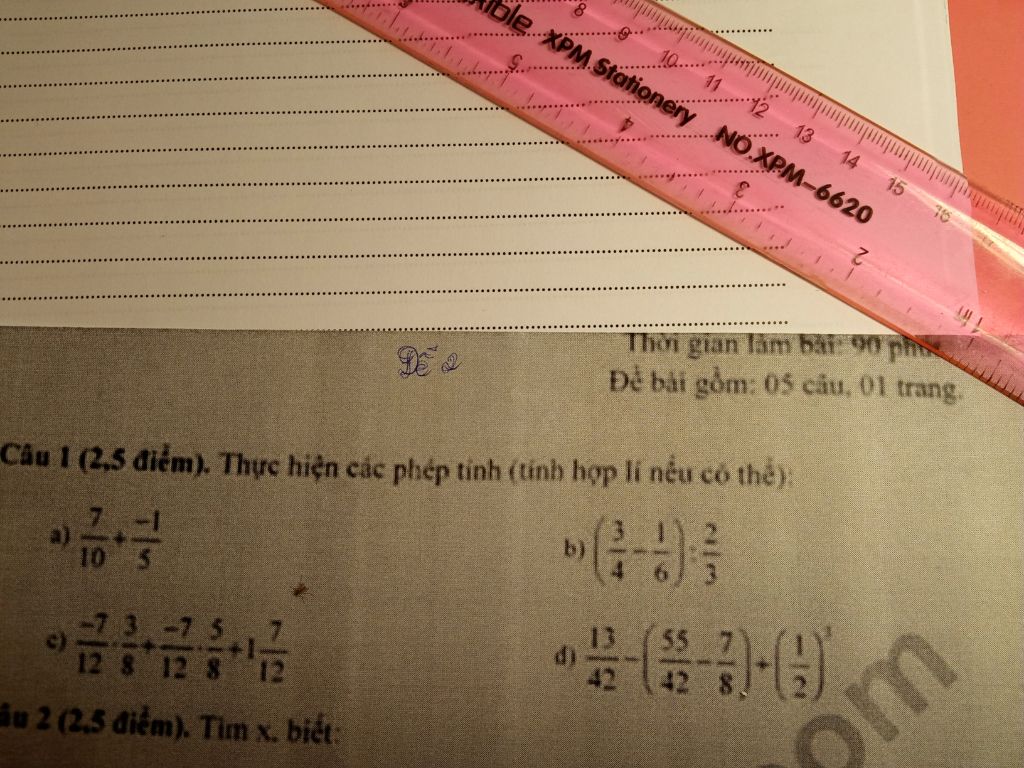 XPM Stationery NO.XPM-6620
8 9 10 11 12 13 14 15 16
5 4 3 2 1
Đề 2
Thời gian làm bài: 90 phút
Đề bài gồm: 05 câu, 01 trang.
Câu 1 (2,5 điểm). Thực hiện các phép tính (tính hợp lí nếu có thể):
a) 7/10 + -1/5 b) (3/4 - 1/6) : 2/3
c) -7/12 . 3/8 + -7/12 . 5/8 + 1 7/12 d) 13/42 - (55/42 - 7/8) + (1/2)³
âu 2 (2,5 điểm). Tìm x, biết:
om